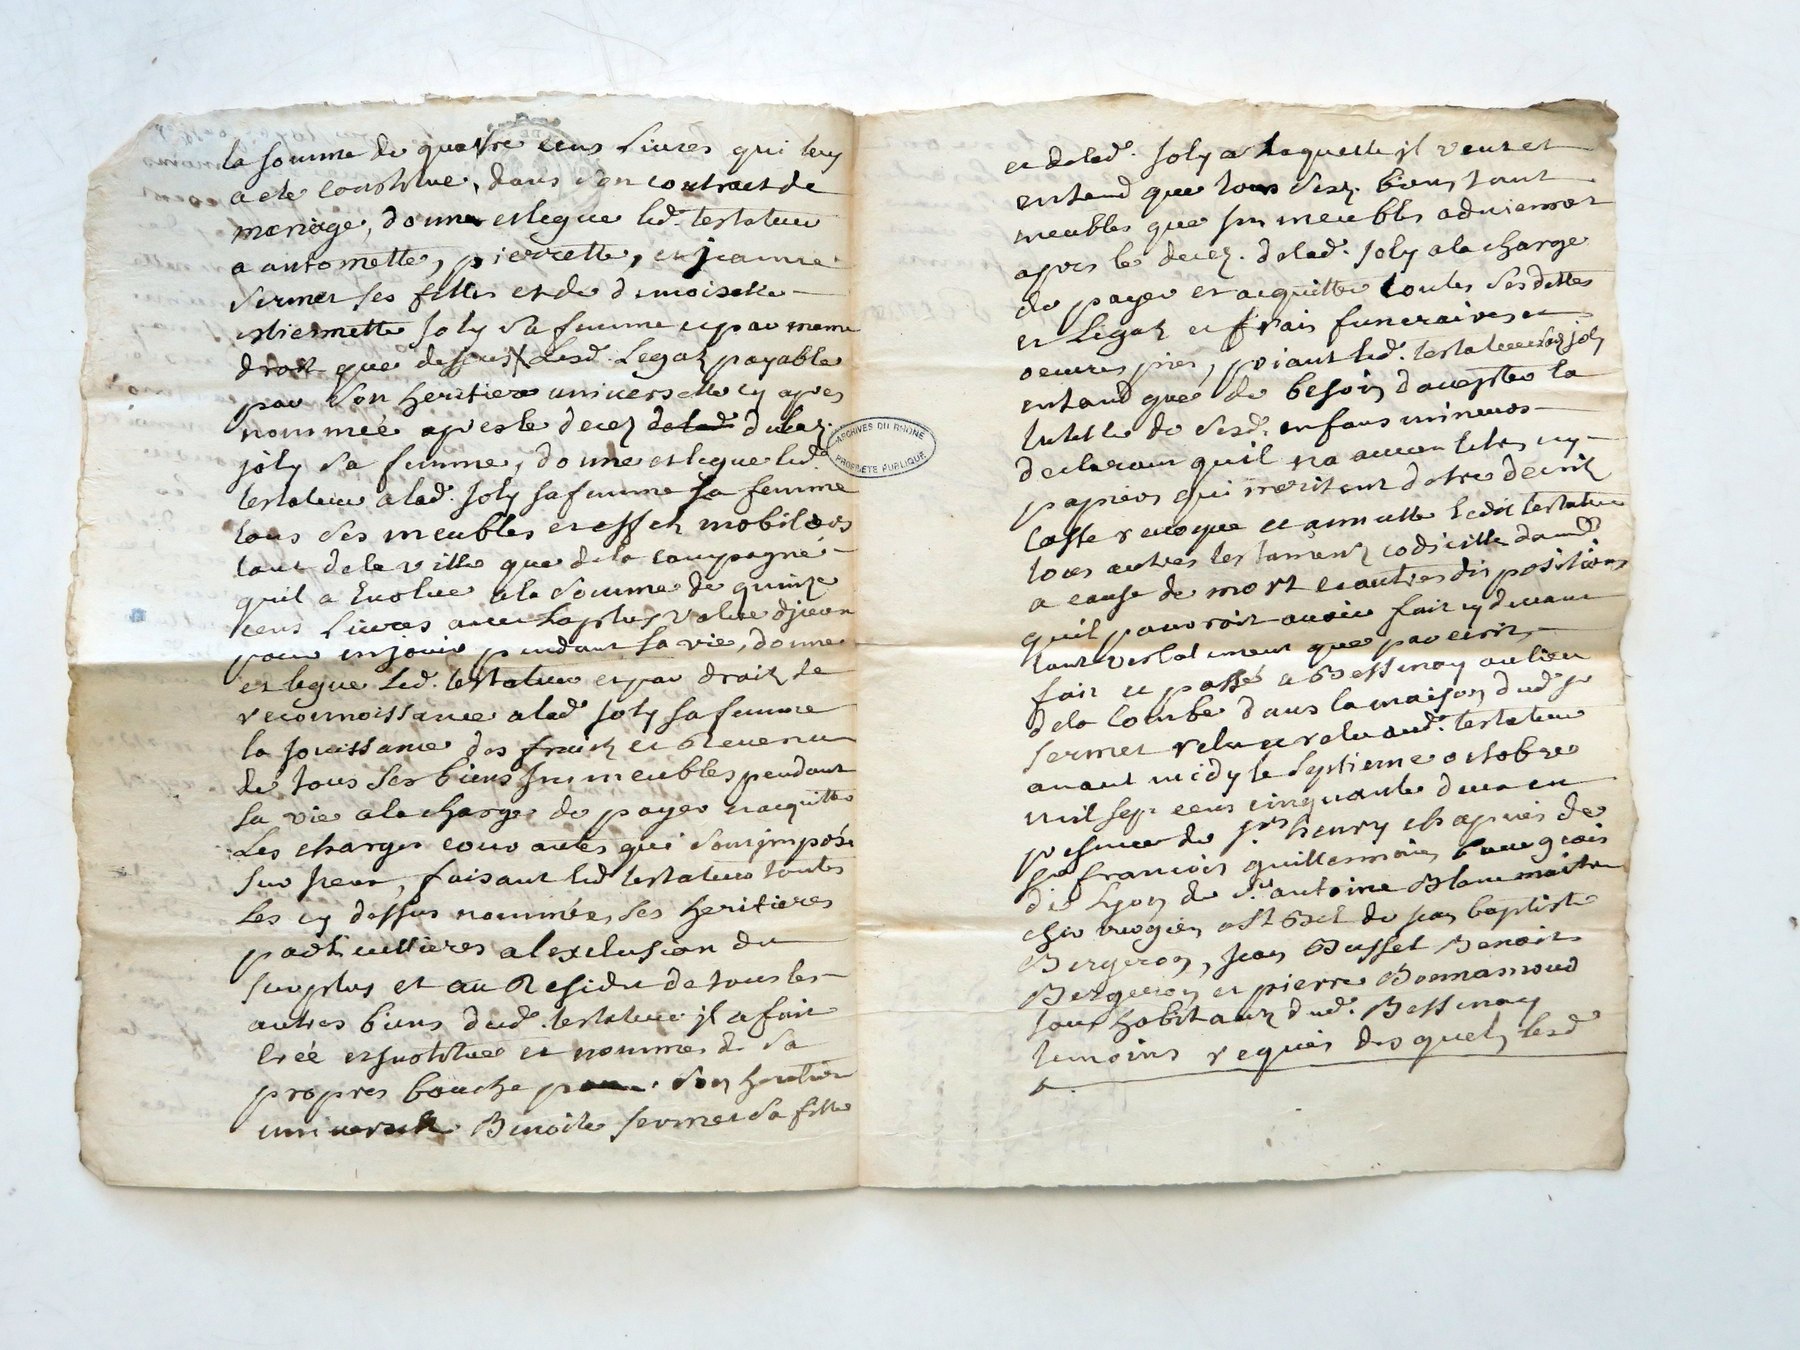 la somme de quatre cens Livres qui luy
a ete constitue, dans son contract de
mariage, donne et legue led. testateur
a antoinette, pierrette, et jeanne
sermet ses filles et de demoiselle
estiennette joly sa femme et par meme
droit que dessus Lesd. Legatz payable
par son heritiere universelle cy apres
nommée apres le decez delad. dulad.
joly sa femme, donne et legue led.
testateur alad. joly sa femme sa femme
tous ses meubles et effetz mobiliers
tant dela ville que dela campagne
quil a Evalue ala somme de quinze
cens Livres avec La plus value djceux
pour en jouir pendant sa vie, donne
et legue Led. testateur et par droit de
reconnoissance alad. joly sa femme
la jouissance des fruitz et Revenus
de tous ses biens jmmeubles pendant
sa vie ala charge de payer et acquitter
Les charges courantes qui sont jmposés
sur jceux, faisant led. testateur toutes
Les cy dessus nommées ses heritieres
particullieres alexclusion du
surplus et au Residu de tous les
autres biens dud. testateur jl a fait
créé et jnstitue et nommé de sa
propres bouche pour son heritiere
universelle Benoite sermet sa fille
et delad. joly a Laquelle jl veut et
entend que tous sesd. biens tant
meubles que jmmeubles adviennent
apres le decez delad. joly ala charge
de payer et acquitter toutes ses dettes
et Legatz et frais funeraires et
oeuvres pies, priant led. testateur lad. joly
entand que de besoin daccepter la
tutelle de sesd. enfans mineurs
declarant quil na aucun titres ny
papiers qui meritent detre decrit
Casse revoque et annulle Ledit testateur
tous autres testamentz codicille donnaon
a cause de mort et autres dispositions
quil pouvroit avoir fait cy devant
tant verbalement que par ecrit,
fait et passé a Bessenay au lieu
dela Combe dans la maison dud. sr
sermet relu et relu aud. testateur
avant midy le septieme octobre
mil sept cens cinquante deux en
presence de sr henry chapuis de
sr francois guillermain bourgeois
de Lyon de sr antoine Blanc maitre
chirurgien a St Bel de jean baptiste
Bergeron, jean Busset Benoit
Bergeron et pierre Bonnamoud
tous habitantz dud. Bessenay
temoins requis desquels lesd